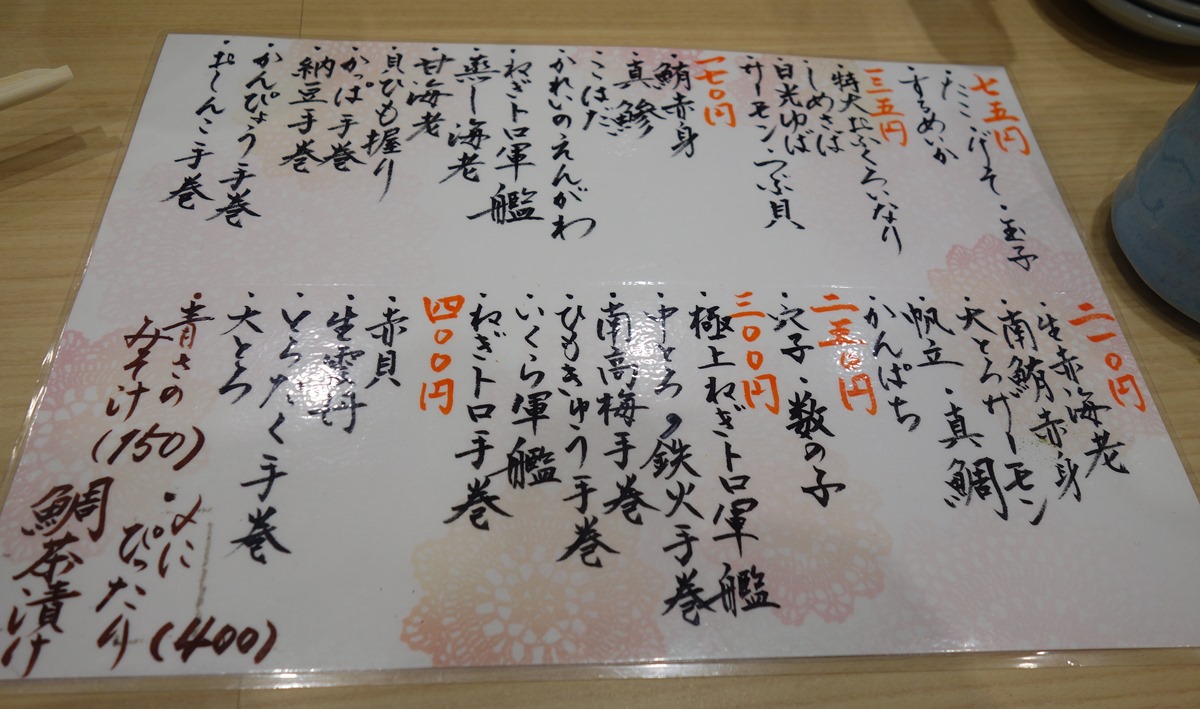 七五円
・たこ・げそ・玉子
・するめいか
一三五円
・特大おふくろいなり
・しめさば
・日光ゆば
・サーモン・つぶ貝
一七〇円
・鮪赤身
・真鯵
・こはだ
・かれいのえんがわ
・ねぎトロ軍艦
・蒸し海老
・甘海老
・貝ひも握り
・かっぱ手巻
・納豆手巻
・かんぴょう手巻
・おしんこ手巻
二一〇円
・生赤海老
・南鮪赤身
・大とろサーモン
・帆立・真鯛
・かんぱち
二五〇円
・穴子・数の子
三〇〇円
・極上ねぎトロ軍艦
・中とろ・鉄火手巻
・南高梅手巻
・ひもきゅう手巻
・いくら軍艦
・ねぎトロ手巻
四〇〇円
・赤貝
・生雲丹
・とろたく手巻
・大とろ
・青さの
みそ汁(150)
・〆に
ぴったり
鯛茶漬け
(400)